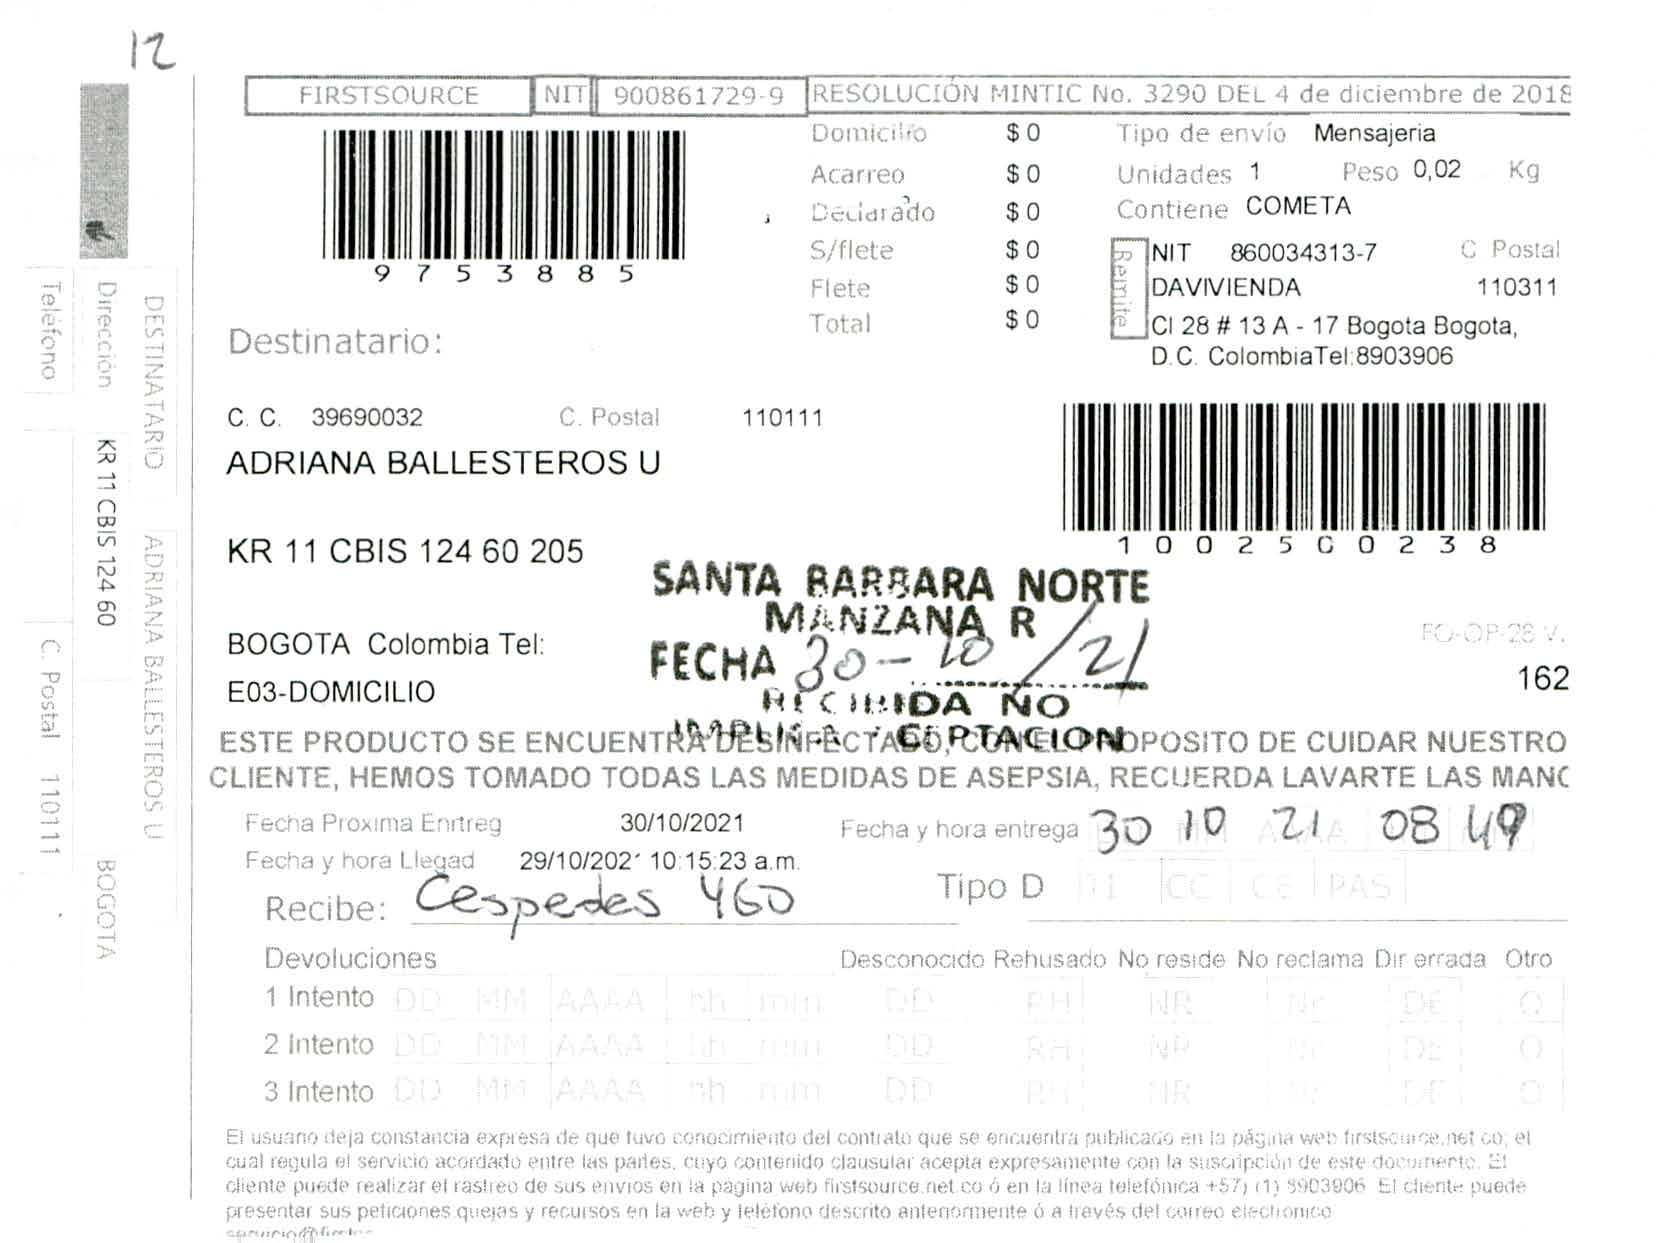 12
FIRSTSOURCE NIT 900861729-9 RESOLUCIÓN MINTIC No. 3290 DEL 4 de diciembre de 2018
9753885
Domicilio $ 0 Tipo de envío Mensajeria
Acarreo $ 0 Unidades 1 Peso 0,02 Kg
Declarado $ 0 Contiene COMETA
S/flete $ 0
Flete $ 0
Total $ 0
Remite
NIT 860034313-7 C Postal
DAVIVIENDA 110311
Cl 28 # 13 A - 17 Bogota Bogota,
D.C. ColombiaTel:8903906
Destinatario:
C. C. 39690032 C. Postal 110111
ADRIANA BALLESTEROS U
1002500238
KR 11 CBIS 124 60 205
SANTA BARBARA NORTE
MANZANA R
FECHA 30-10/21
RECIBIDA NO
IMPLICA ACEPTACION
BOGOTA Colombia Tel:
E03-DOMICILIO
FO-OP-28 V.
162
ESTE PRODUCTO SE ENCUENTRA DESINFECTADO, CON EL PROPOSITO DE CUIDAR NUESTRO
CLIENTE, HEMOS TOMADO TODAS LAS MEDIDAS DE ASEPSIA, RECUERDA LAVARTE LAS MANO
Fecha Proxima Enrtreg 30/10/2021 Fecha y hora entrega 30 10 21 08 49
Fecha y hora Llegad 29/10/2021 10:15:23 a.m.
Recibe: Cespedes 460 Tipo D TI CC CE PAS
Devoluciones Desconocido Rehusado No reside No reclama Dir errada Otro
1 Intento DD MM AAAA hh mm DD RH NR Nr DE O
2 Intento DD MM AAAA hh mm DD RH NR Nr DE O
3 Intento DD MM AAAA hh mm DD RH NR Nr DE O
El usuario deja constancia expresa de que tuvo conocimiento del contrato que se encuentra publicado en la página web firstsource.net.co; el
cual regula el servicio acordado entre las partes, cuyo contenido clausular acepta expresamente con la suscripción de este documento. El
cliente puede realizar el rastreo de sus envios en la página web firstsource.net.co ó en la línea telefónica +57) (1) 8903906 El cliente puede
presentar sus peticiones quejas y recursos en la web y teléfono descrito anteriormente ó a través del correo electronico
DESTINATARIO ADRIANA BALLESTEROS U
Dirección KR 11 CBIS 124 60 BOGOTA
Teléfono C. Postal 110111